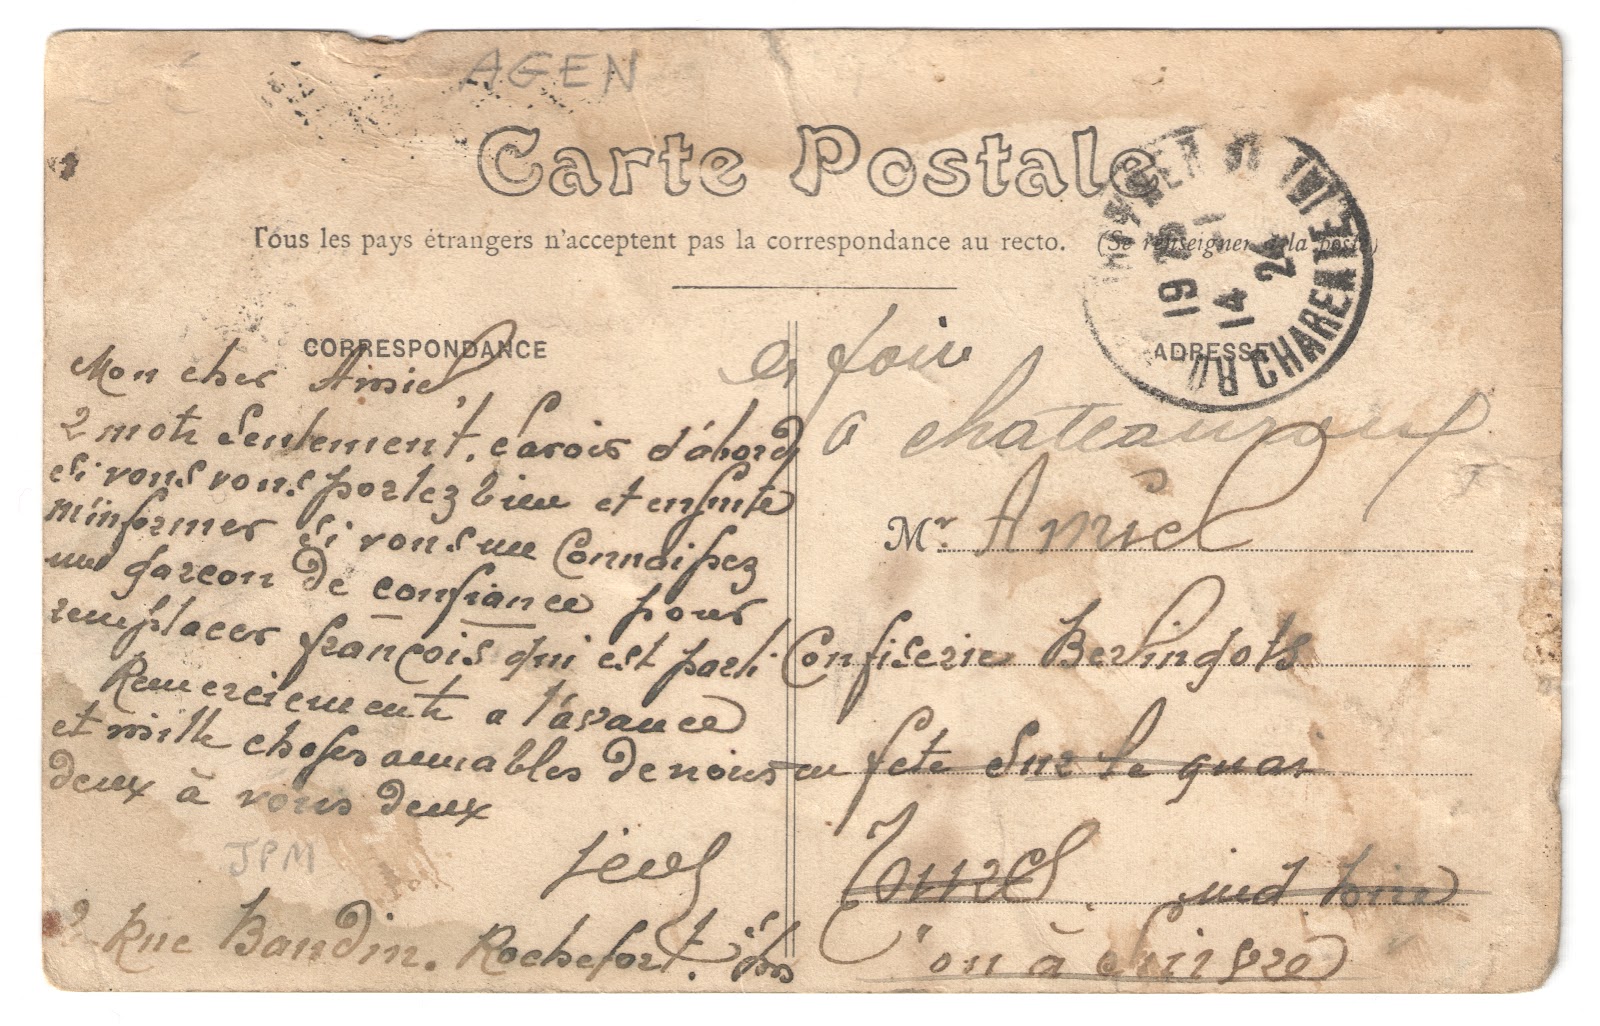 AGEN
Carte Postale
Tous les pays étrangers n'acceptent pas la correspondance au recto. (Se renseigner à la poste)
CORRESPONDANCE
Mon cher Amiel
2 mots seulement, savoir d'abord
si vous vous portez bien et ensuite
m'informer si vous me connaissez
un garçon de confiance pour
remplacer françois qui est parti
Remerciements a l'avance
et mille choses aimables de nous
deux à vous deux
JPM
2 Rue Baudin. Rochefort.
19 15
14 1
24
CHARENTE
ADRESSE
en foire
a chateauroux
Mr. Amiel
Confiserie Berlingots
en fete sur le quai
Tours ind loire
ou à suivre